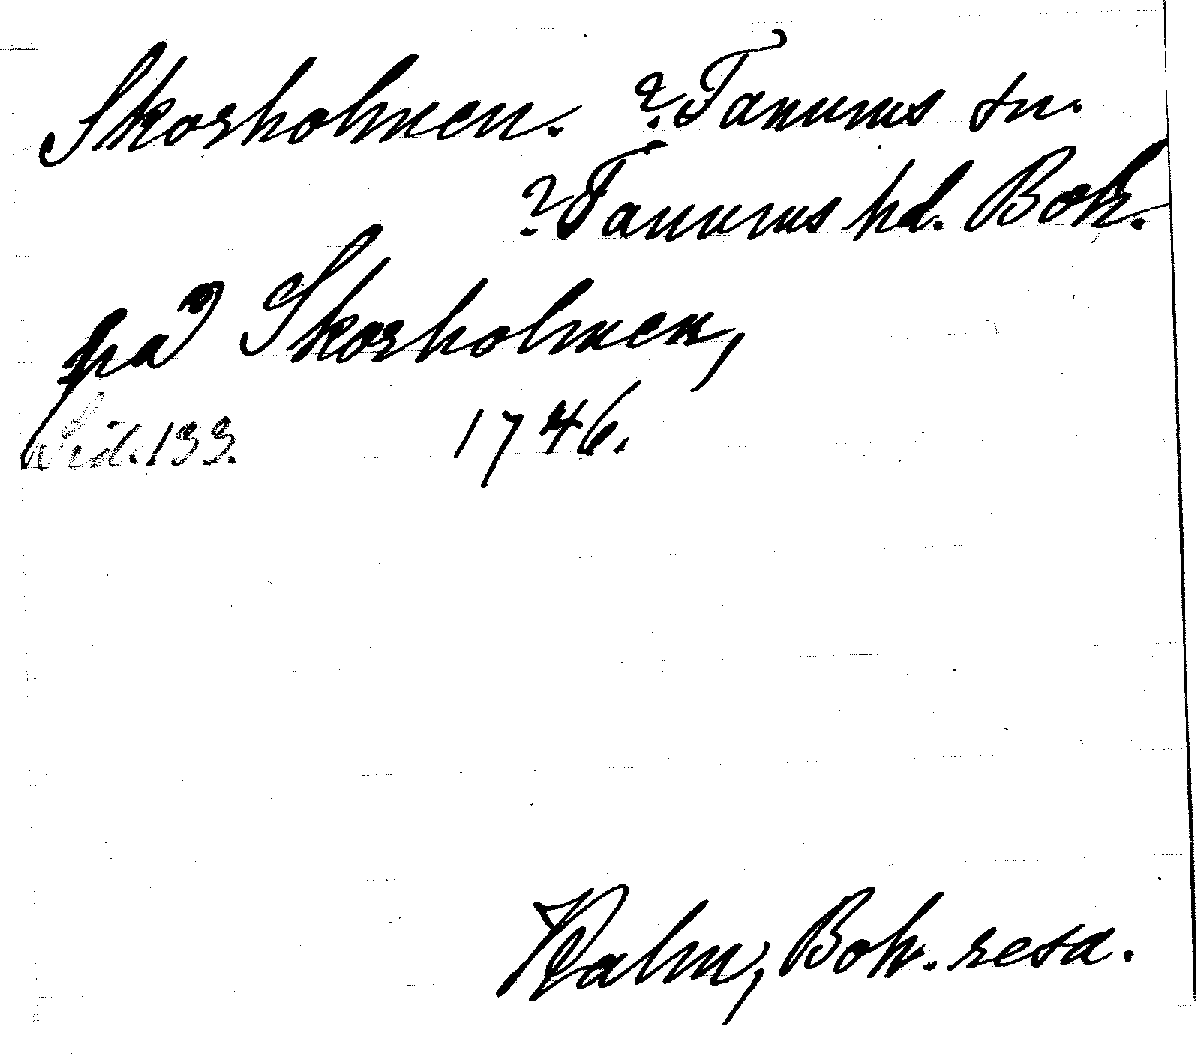 Skorholmen. ? Tanums sn.
? Tanums hd. Boh.
på Skorholmen,
Sid. 133. 1746.
Kalm, Boh. resa.